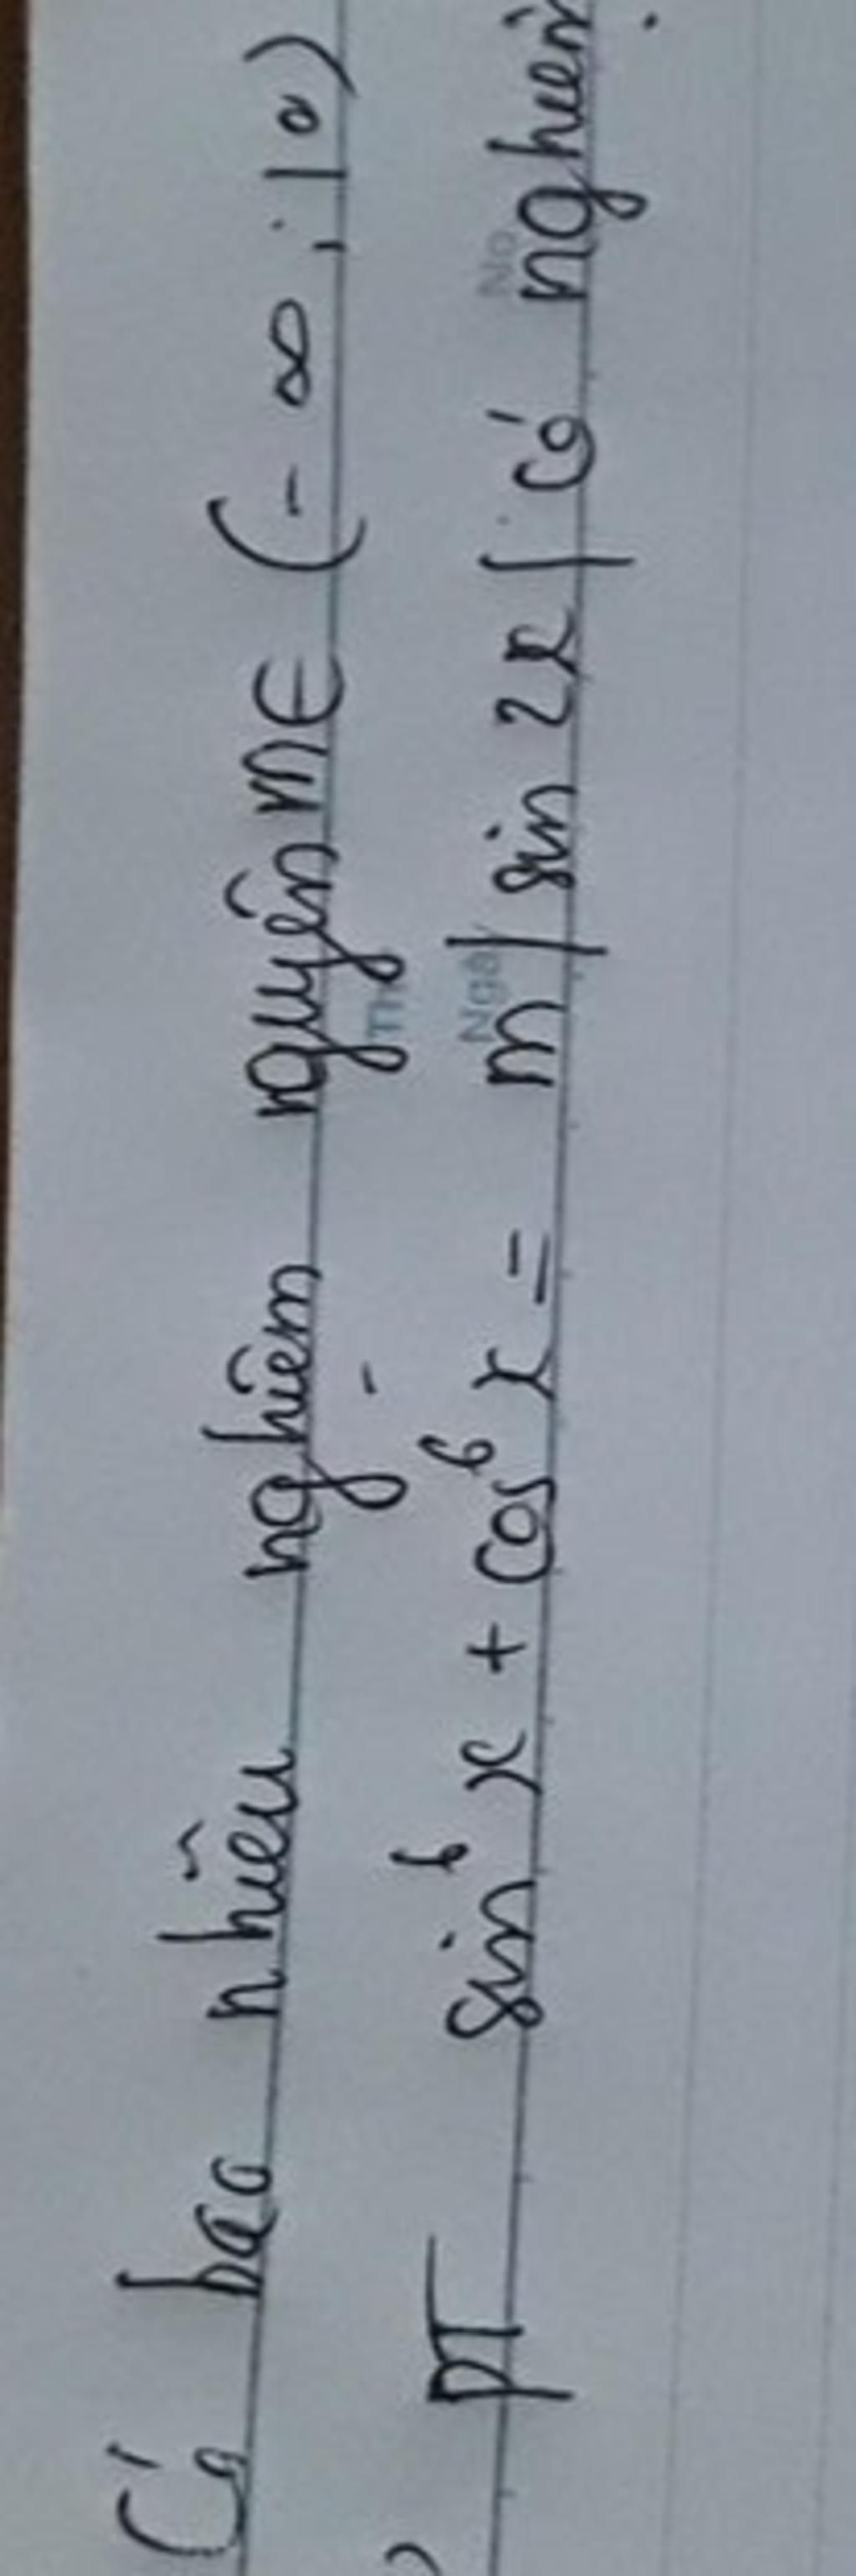 Có bao nhiêu nghiệm nguyên m ∈ (-∞; 10)
PT sin⁶x + cos⁶x = m|sin 2x| có nghiệm.